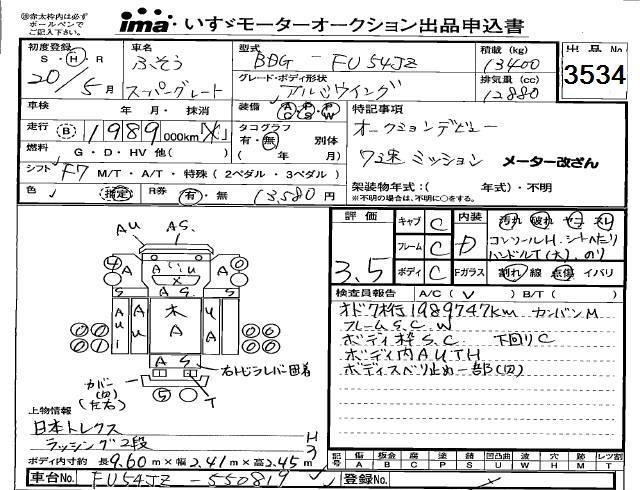 ※赤太枠内は必ず
ボールペンで
ご記入下さい。
ima・いすゞモーターオークション出品申込書
初度登録 S・H・R 20/5月
車名 ふそう スーパーグレート
型式 BDG-FU54JZ
グレード・ボディ形状 アルミウイング
積載 (kg) 13400
排気量 (cc) 12880
出品No 3534
車検 年・月・抹消
装備 AC PS PW
特記事項
走行 B 1989 000km
タコグラフ 有・無 別体
( 年 月)
オークションデビュー
7速ミッション メーター改ざん
燃料 G・D・HV 他( )
シフト F7 M/T・A/T・特殊(2ペダル・3ペダル)
架装物年式:( 年式)・不明
※不明の場合は、不明に○をする。
色 指定 R券 有・無 13,580円
評価 3.5
キャブ C
フレーム C
ボディ C
内装 D
汚れ 破れ ヤニ スレ
コンソールH.シートへたり
ハンドルT(大).のり
Fガラス 割れ 線 点傷 イバリ
検査員報告 A/C( V ) B/T( )
オドク粋行1989747km カンバンM
フレームS.C.W
ボディ枠S.C 下回りC
ボディ内AUTH
ボディスベリ止め一部(凹)
AU AS.
右トビラレバー固着
カバー(凹)
(左右)
T
上物情報
日本トレクス
ラッシング2段
ボディ内寸約 長9.60m×幅2.41m×高2.45m
記号 傷A 板金B 腐C 塗S 錆S 凹凸曲U 波W 穴H 跡M 欠M レツ割T
車台No. FU54JZ-550819
登録No.